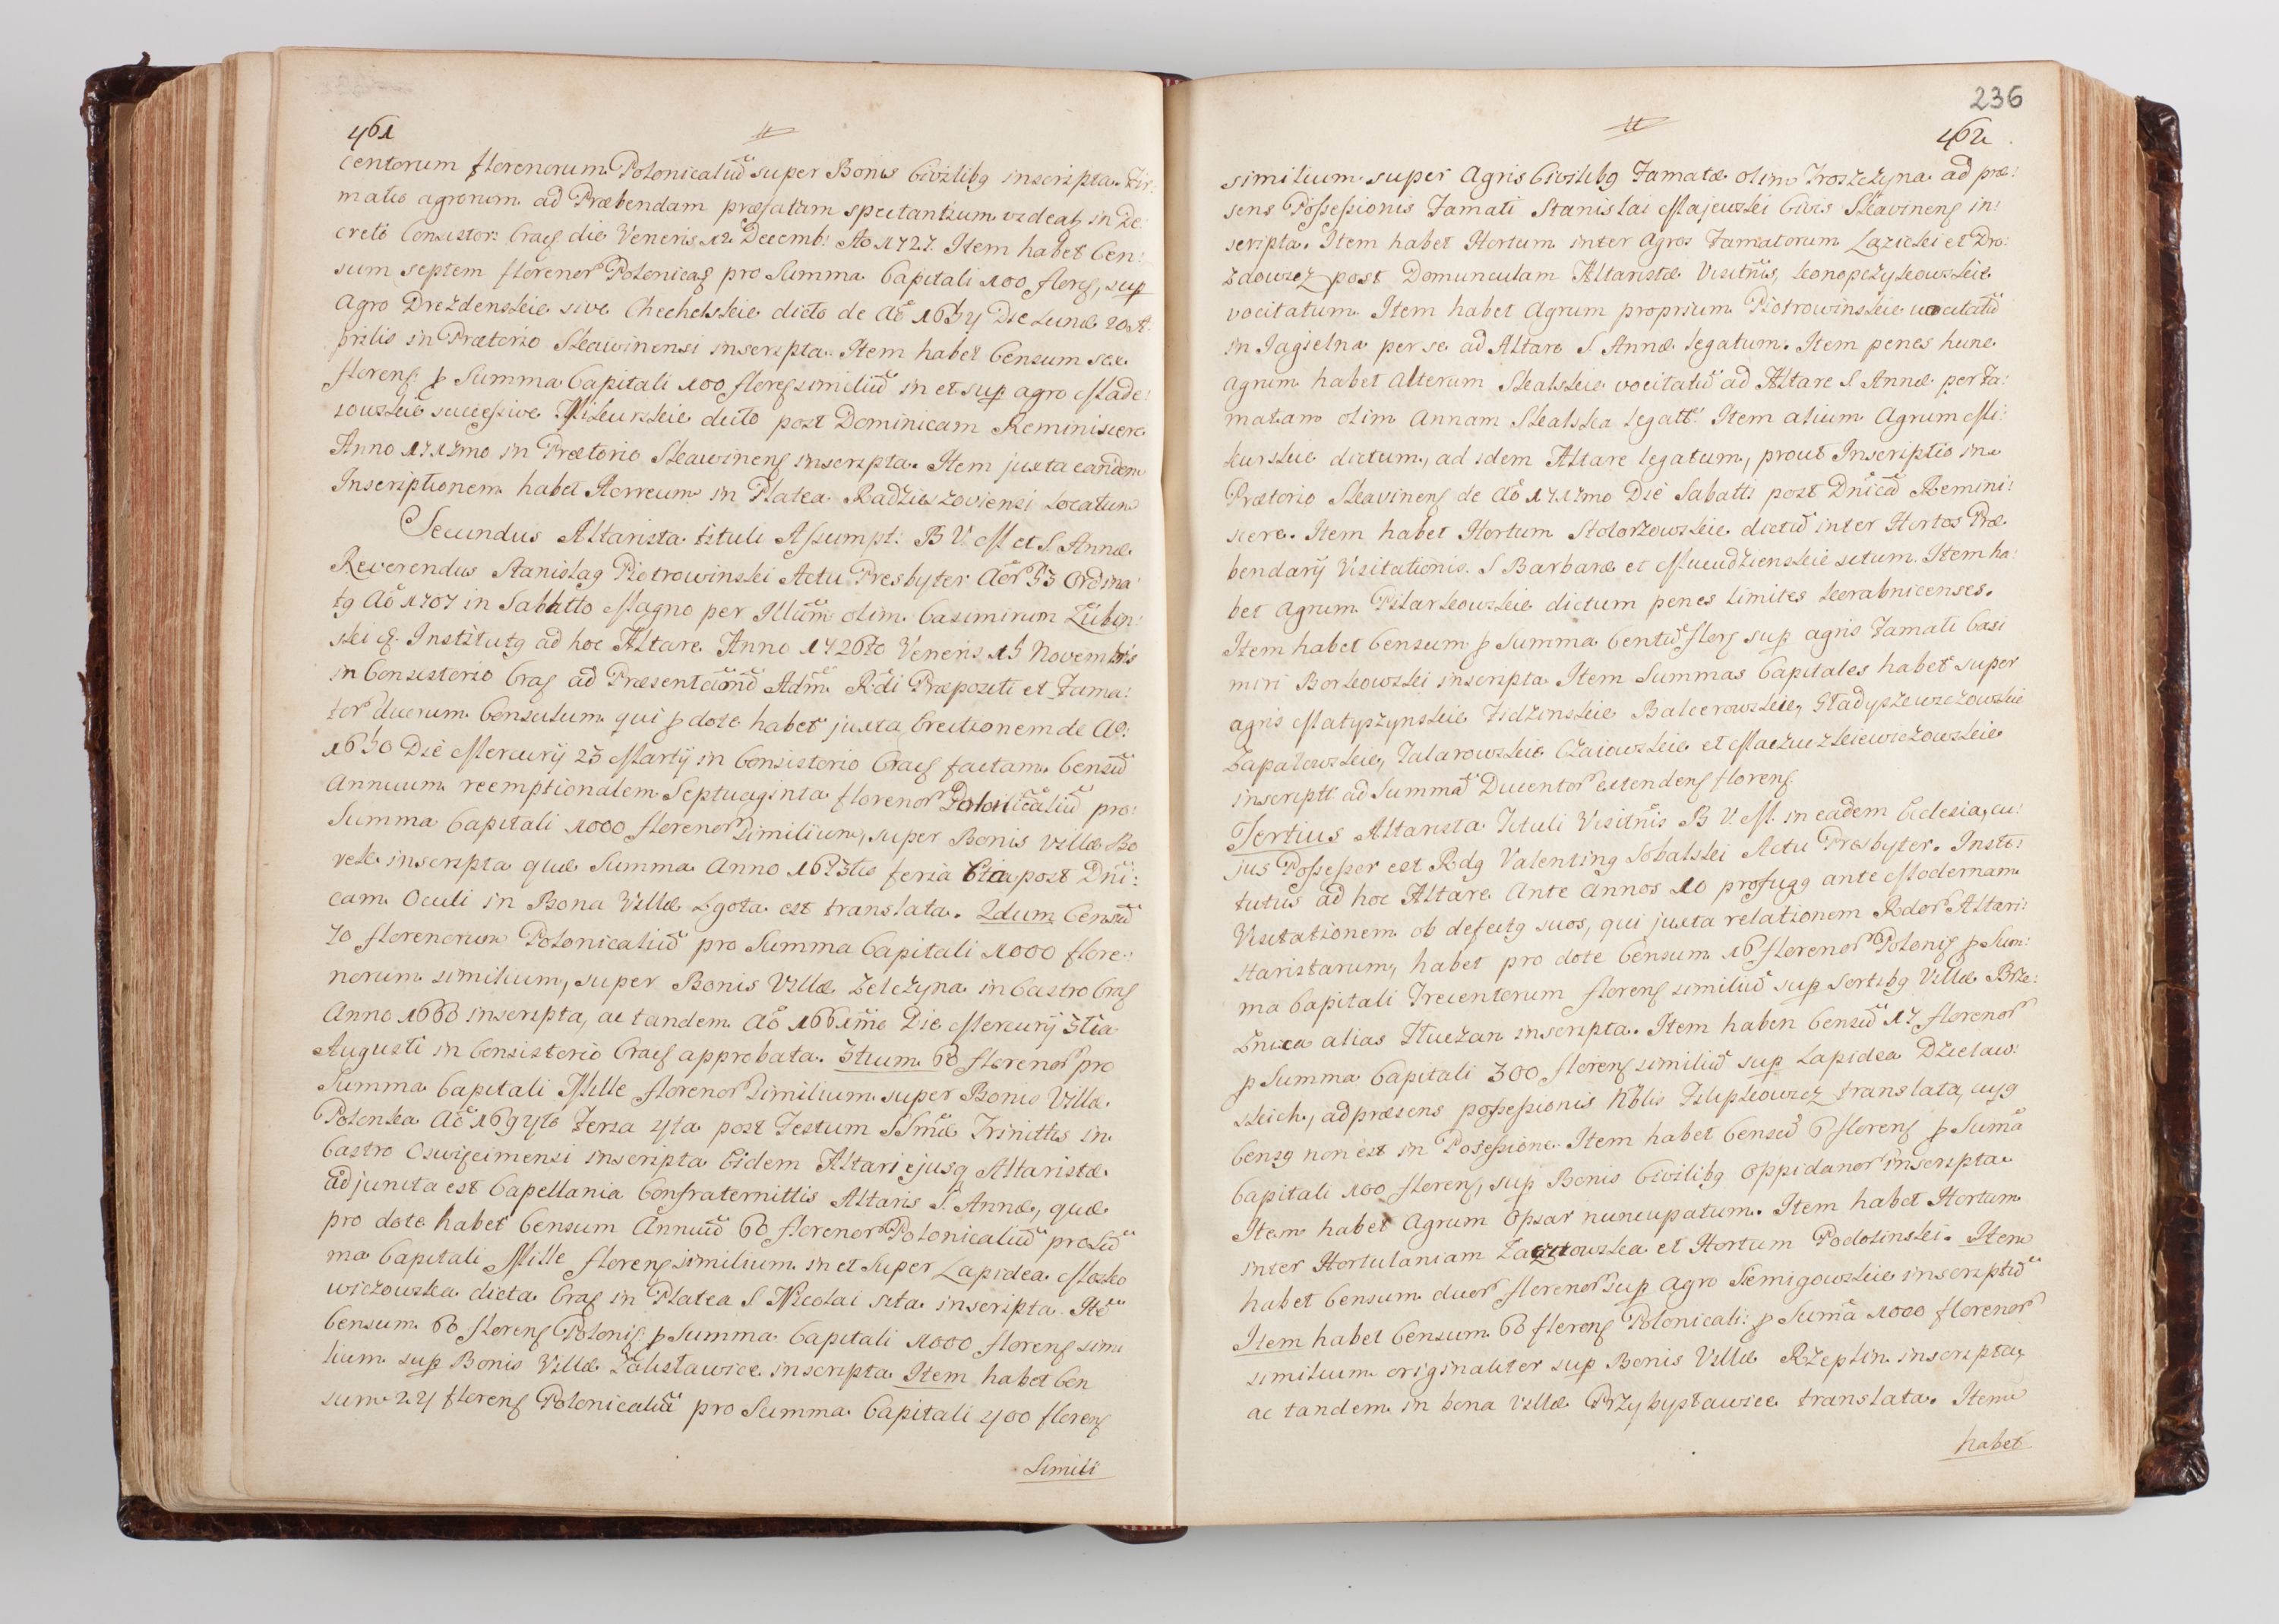 461
#
centorum florenorum Polonicaliũ super Bonis Civilibg inscripta. Fir:
matio agrorum ad Præbendam præfatam spectantium videatʒ in De:
creto Consistor: Crac̃ die Veneris 12 Decemb: Ao 1727. Item habet Cen:
sum septem florenor̃ Polonicaɡ̃ pro Summa Capitali 100 floren̄, sup̱
Agro Drezdenskie sive Chechelskie dicto de Aõ 1634 Die Lunæ 20 A:
prilis in Prætorio Skawinensi inscripta. Item habet Censum sex
floren̄ p̱ Summa Capitali 100 floren̄ similiũ in et sup̱ agro Made:
iowskie successive Mikurskie dicto post Dominicam Reminiscere
Anno 1717mo in Prætorio Skawinen̄ inscripta. Item juxta eandem
Inscriptionem habet Horreum in Platea Radzieszoviensi locatum
Secundus Altarista tituli Assumpt: B V. M et S. Annæ
Reverendus Stanislaɡ Piotrowinski Actu Presbyter Aõr 53 Ordina:
tɡ Aõ 1707 in Sabbatto Magno per Illũm olim Casimirum Łubin:
ski &. Institutɡ ad hoc Altare Anno 1726to Veneris 15 Novembris
in Consistorio Crac̃ ad Præsentc̃onẽ Adm̃ Rdi Præpositi et Fama:
tor̃ duorum Consulum qui p̱ dote habet juxta Erectionem de Ao:
1650 Die Mercurij 23 Martij in Consistorio Crac̃ factam Censũ
Annuum reemptionalem Septuaginta florenor̃ Polonicaliũ pro:
Summa Capitali 1000 florenor̃ similium, super Bonis villæ Bo
rek inscripta quæ Summa Anno 1673tio feria 6ta post Dñi:
cam Oculi in Bona Villæ Lgota est translata. 2dum Censũ
70 florenorum Polonicaliũ pro Summa Capitali 1000 flore:
norum similium, super Bonis Villæ Zelczyna in Castro Crac̃
Anno 1660 inscripta, ac tandem Aõ 1661mo Die Mercurij 3tia
Augusti in Consistorio Crac̃ approbata. 3tium 60 florenor̃ pro
Summa Capitali Mille florenor̃ similium super Bonis Villæ
Polanka Aõ 1694to Feria 4ta post Festum SSmæ Trinittis in
Castro Oswięcimensi inscripta Eidem Altari ejusɡ Altaristæ
adjuncta est Capellania Confraternittis Altaris S. Annæ, quæ
pro dote habet Censum Annuũ 60 florenor̃ Polonicaliũ pro Sũ
ma Capitali Mille floren̄ similium in et super Lapidea Mosko
wiczowska dicta Crac̃ in Platea S Nicolai sita inscripta. Itẽ
Censum 60 floren̄ Polonic̃ p̱ Summa Capitali 1000 floren̄ simi
lium sup̱ Bonis Villæ Zalisławice inscripta Item habet Cen
sum 24 floren̄ Polonicaliũ pro Summa Capitali 400 floren̄
Simili
236
#
462
similium super Agris Civilibɡ Famatæ olim Troszczyna ad præ:
sens Possessionis Famati Stanislai Majewski Civis Skavinen̄ in:
scripta. Item habet Hortum inter Agros Famatorum Lazicki et Dro:
zdowicz post Domunculam Altaristæ Visitñis, konopczykowskie
vocitatum. Item habet Agrum proprium Piotrowinskie vocitatũ
in Jagielna per se ad Altare S. Annæ legatum. Item penes hunc
agrum habet alterum Skalskie vocitatũ ad Altare S Annæ per Fa:
matam olim Annam Skalska legatt: Item alium Agrum Mi:
kurskie dictum, ad idem Altare legatum, prout Inscriptio in
Prætorio Skavinen̄ de Aõ 1717mo Die Sabatti post Dñicã Remini:
scere. Item habet Hortum Stolarzowskie dictũ inter Hortos Præ
bendarij Visitationis. S Barbaræ et Mucudzienskie situm. Item ha:
bet agrum Pilarkowskie dictum penes limites korabnicenses.
Item habet Censum p̱ Summa Centũ floren̄ sup̱ agris Famati Casi
miri Borkowski inscripta. Item Summas Capitales habet super
agris Matyszynskie Fidzinskie Balcerowskie, Gładyszewiczowskie
Zapałowskie, Talarowskie Czaiowskie et Maczuzkiewiczowskie
inscriptt ad Summã Ducentor̃ extenden̄ floren̄.
Tertius Altarista Tituli Visitñis B V. M. in eadem Ecclesia, cu:
jus Possessor est Rdɡ Valentinɡ Sobalski Actu Presbyter. Insti:
tutus ad hoc Altare ante Annos 10 profugɡ ante Modernam
Visitationem ob defectɡ suos, qui juxta relationem Rdor̃ Altari:
staristarum, habet pro dote Censum 16 florenor̃ Polonic̃ p̱ Sum:
ma Capitali Trecentorum floren̄ similiũ sup̱ Sortibɡ Villæ Brze:
znica alias Tłuczan inscripta. Item haben Censũ 17 florenor̃
p̱ Summa Capitali 300 floren̄ similiũ sup̱ Lapidea Dzielaw:
skich, ad præsens possessionis Nblis Filipkowicz translata, cujɡ
Censɡ non est in Possessione. Item habet Censũ 6 floren̄ p̱ Sumã
Capitali 100 floren̄, sup̱ Bonis Civilibɡ Oppidanor̃ inscripta
Item habet Agrum Opsar nuncupatum. Item habet Hortum
inter Hortulaniam Zacztowska et Hortum Podolinski. Item
habet Censum duor̃ florenor̃ sup̱ agro Siemigowskie inscriptũ
Item habet Censum 60 floren̄ Polonicali: p̱ Sumã 1000 florenor̃
similium originaliter sup̱ Bonis Villæ Rzeplin inscripta,
ac tandem in bona Villæ Przybysławice translata. Item
habet